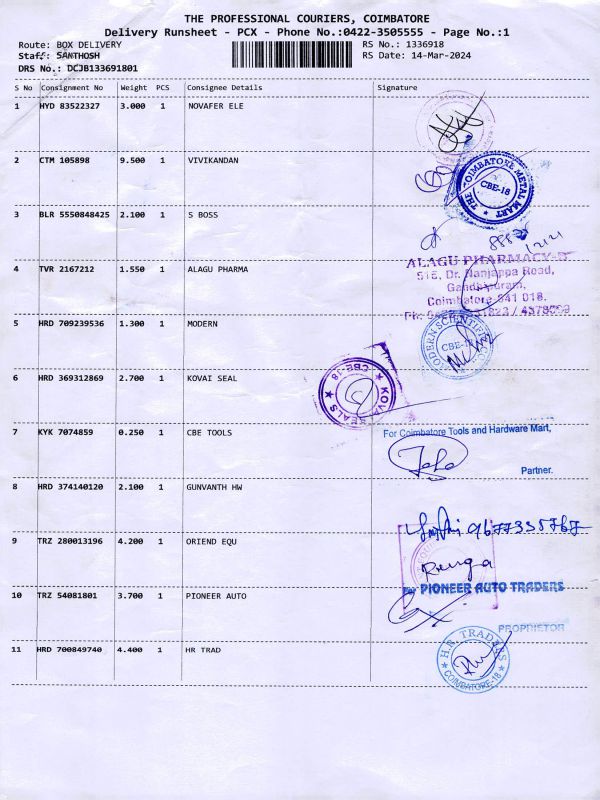 THE PROFESSIONAL COURIERS, COIMBATORE
Delivery Runsheet - PCX - Phone No.:0422-3505555 - Page No.:1
Route: BOX DELIVERY RS No.: 1336918
Staff: SANTHOSH RS Date: 14-Mar-2024
DRS No.: DCJB133691801
S No Consignment No Weight PCS Consignee Details Signature
1 HYD 83522327 3.000 1 NOVAFER ELE
2 CTM 105898 9.500 1 VIVIKANDAN
THE COIMBATORE METAL MART
CBE-18
3 BLR 5550848425 2.100 1 S BOSS
4 TVR 2167212 1.550 1 ALAGU PHARMA
ALAGU PHARMACY
515, Dr. Nanjappa Road,
Gandhipuram,
Coimbatore-641 018.
5 HRD 709239536 1.300 1 MODERN
MODERN SCIENTIFIC
6 HRD 369312869 2.700 1 KOVAI SEAL
KOVAI SEALS
CBE-18
7 KYK 7074859 0.250 1 CBE TOOLS
For Coimbatore Tools and Hardware Mart,
Partner.
8 HRD 374140120 2.100 1 GUNVANTH HW
9677335767
9 TRZ 280013196 4.200 1 ORIEND EQU
Renga
For PIONEER AUTO TRADERS
10 TRZ 54081801 3.700 1 PIONEER AUTO
PROPRIETOR
11 HRD 700849740 4.400 1 HR TRAD
H.R. TRADERS
COIMBATORE-18